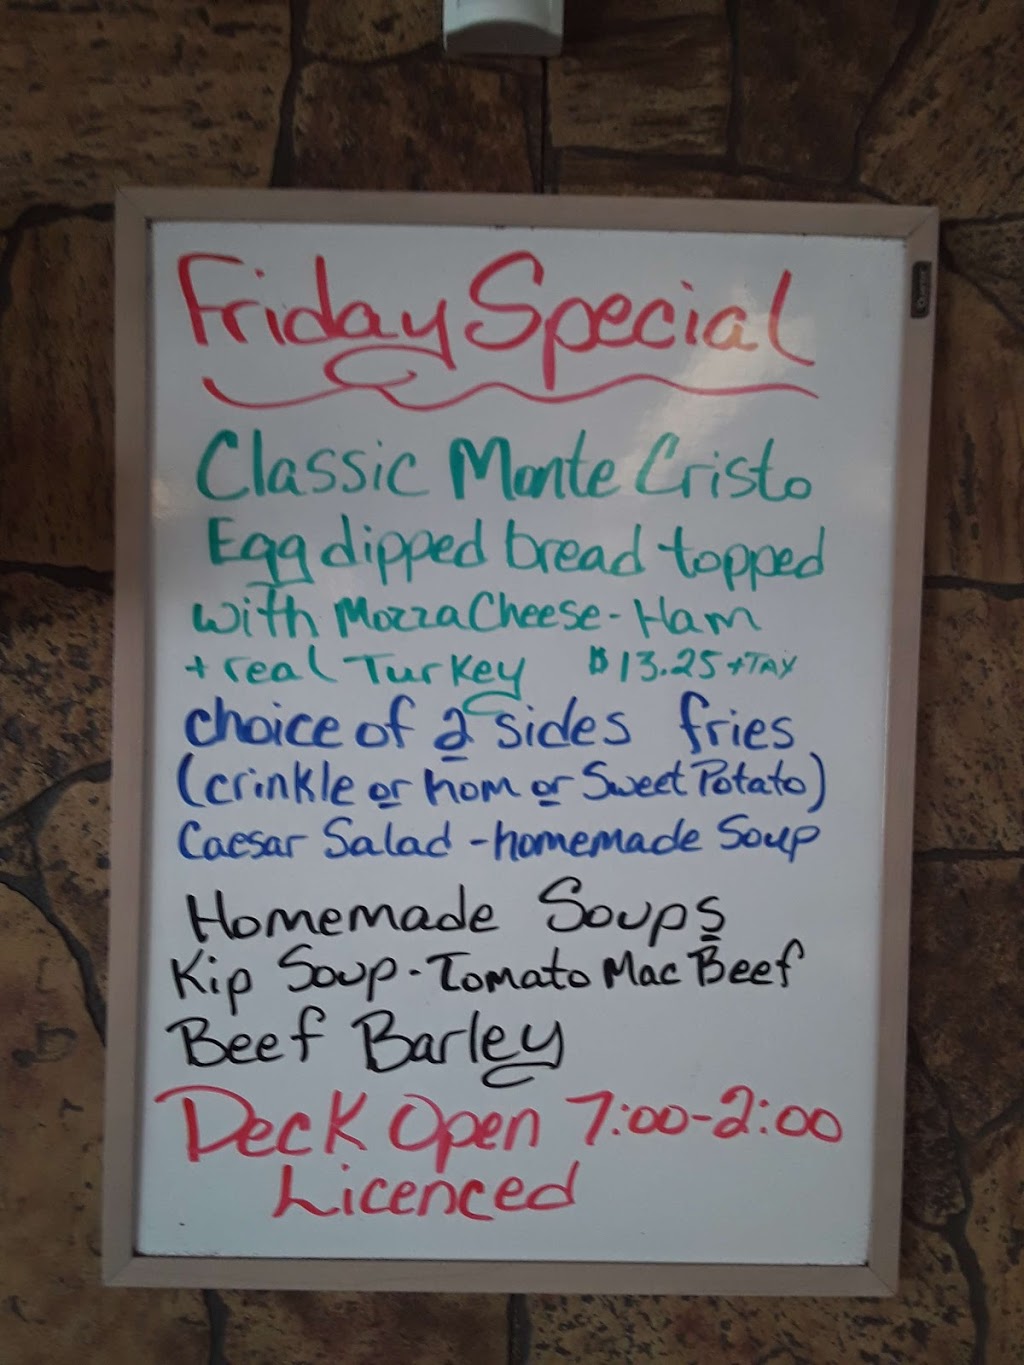 Friday Special
Classic Monte Cristo
Egg dipped bread topped
with Mozza Cheese - Ham
+ real Turkey $13.25 + TAX
choice of 2 sides fries
(crinkle or hom or Sweet Potato)
Caesar Salad - homemade Soup
Homemade Soups
Kip Soup - Tomato Mac Beef
Beef Barley
Deck Open 7:00-2:00
Licenced